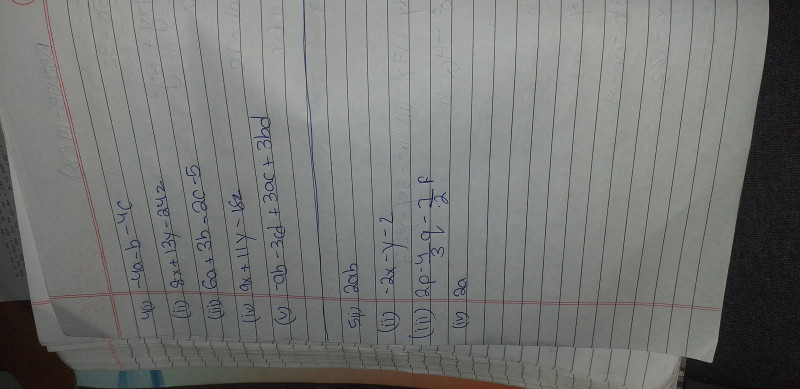 4(i) -4a-b-4c
(ii) 8x+13y-24z
(iii) 6a+3b-2c-5
(iv) 9x+11y-16z
(v) -ab-3cd+3ac+3bd
5(i) 2ab
(ii) -2x-y-2
(iii) 2p-4/3 q-7/2 r
(iv) 2a